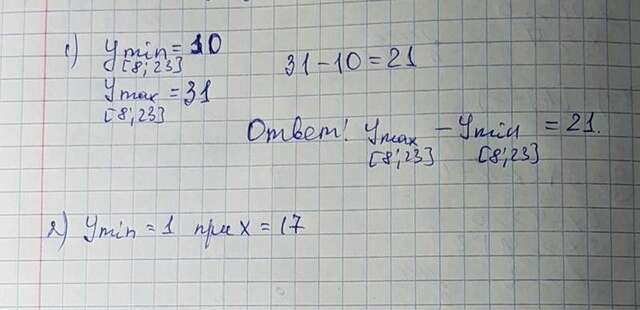 1) ymin = 10
[8; 23]
ymax = 31
[8; 23]
31 - 10 = 21
Ответ! ymax - ymin = 21.
[8; 23] [8; 23]
2) ymin = 1 при x = 17